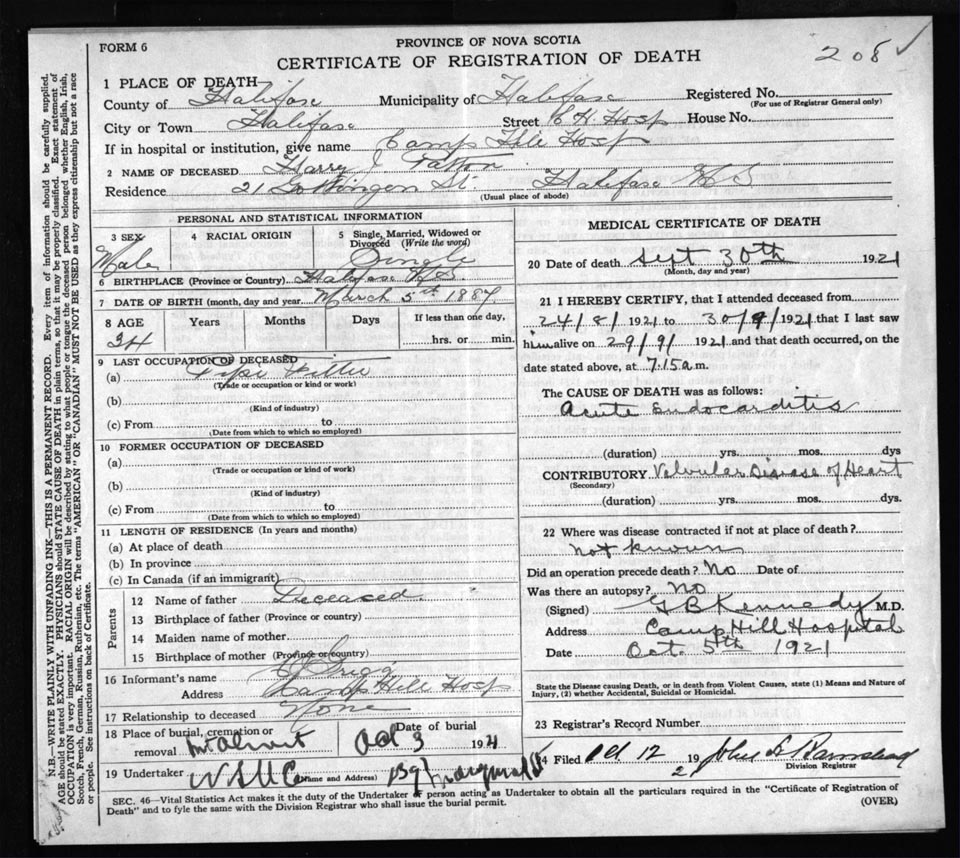 PROVINCE OF NOVA SCOTIA
FORM 6
CERTIFICATE OF REGISTRATION OF DEATH
208 ✓
1 PLACE OF DEATH
County of Halifax Municipality of Halifax Registered No.
(For use of Registrar General only)
City or Town Halifax Street C H. Hosp House No.
If in hospital or institution, give name Camp Hill Hosp
2 NAME OF DECEASED Harry J
Residence 21 Gottingen St. Halifax N S
(Usual place of abode)
PERSONAL AND STATISTICAL INFORMATION
3 SEX
Male
4 RACIAL ORIGIN
5 Single, Married, Widowed or Divorced (Write the word)
Single
6 BIRTHPLACE (Province or Country) Halifax N.S.
7 DATE OF BIRTH (month, day and year) March 5th 1887
8 AGE Years Months Days If less than one day,
34 hrs. or min.
9 LAST OCCUPATION OF DECEASED
(a) Pipe Fitter
(Trade or occupation or kind or work)
(b)
(Kind of industry)
(c) From to
(Date from which to which so employed)
10 FORMER OCCUPATION OF DECEASED
(a)
(Trade or occupation or kind of work)
(b)
(Kind of industry)
(c) From to
(Date from which to which so employed)
11 LENGTH OF RESIDENCE (In years and months)
(a) At place of death
(b) In province
(c) In Canada (if an immigrant)
Parents
12 Name of father Deceased.
13 Birthplace of father (Province or country)
14 Maiden name of mother
15 Birthplace of mother (Province or country)
16 Informant's name
Address Camp Hill Hosp
17 Relationship to deceased None
18 Place of burial, cremation or Date of burial
removal Mt Olivet Oct 3 1921
19 Undertaker N S U Co (Name and Address)
MEDICAL CERTIFICATE OF DEATH
20 Date of death Sept 30th 1921
(Month, day and year)
21 I HEREBY CERTIFY, that I attended deceased from
24/8/ 1921 to 30/9/ 1921 that I last saw
him alive on 29/9/ 1921 and that death occurred, on the
date stated above, at 7.15 a m.
The CAUSE OF DEATH was as follows:
Acute Endocarditis
(duration) yrs. mos. dys
CONTRIBUTORY Valvular Disease of Heart
(Secondary)
(duration) yrs. mos. dys.
22 Where was disease contracted if not at place of death?
not known
Did an operation precede death? No Date of
Was there an autopsy? No
(Signed) G B Kennedy M.D.
Address Camp Hill Hospital
Date Oct. 5th 1921
State the Disease causing Death, or in death from Violent Causes, state (1) Means and Nature of
Injury, (2) whether Accidental, Suicidal or Homicidal.
23 Registrar's Record Number
24 Filed Oct. 12 192 John
Division Registrar
SEC. 46—Vital Statistics Act makes it the duty of the Undertaker or person acting as Undertaker to obtain all the particulars required in the "Certificate of Registration of
Death" and to fyle the same with the Division Registrar who shall issue the burial permit. (OVER)
N.B.—WRITE PLAINLY WITH UNFADING INK—THIS IS A PERMANENT RECORD. Every item of information should be carefully supplied.
AGE should be stated EXACTLY. PHYSICIANS should STATE CAUSE OF DEATH in plain terms, so that it may be properly classified. Exact statement of
OCCUPATION is very important. RACIAL ORIGIN will be described by stating to what people or tongue the deceased person belonged whether English, Irish,
Scotch, French, German, Russian, Ruthenian, etc. The terms "AMERICAN" OR "CANADIAN" MUST NOT BE USED as they express citizenship but not a race
or people. See instructions on back of Certificate.